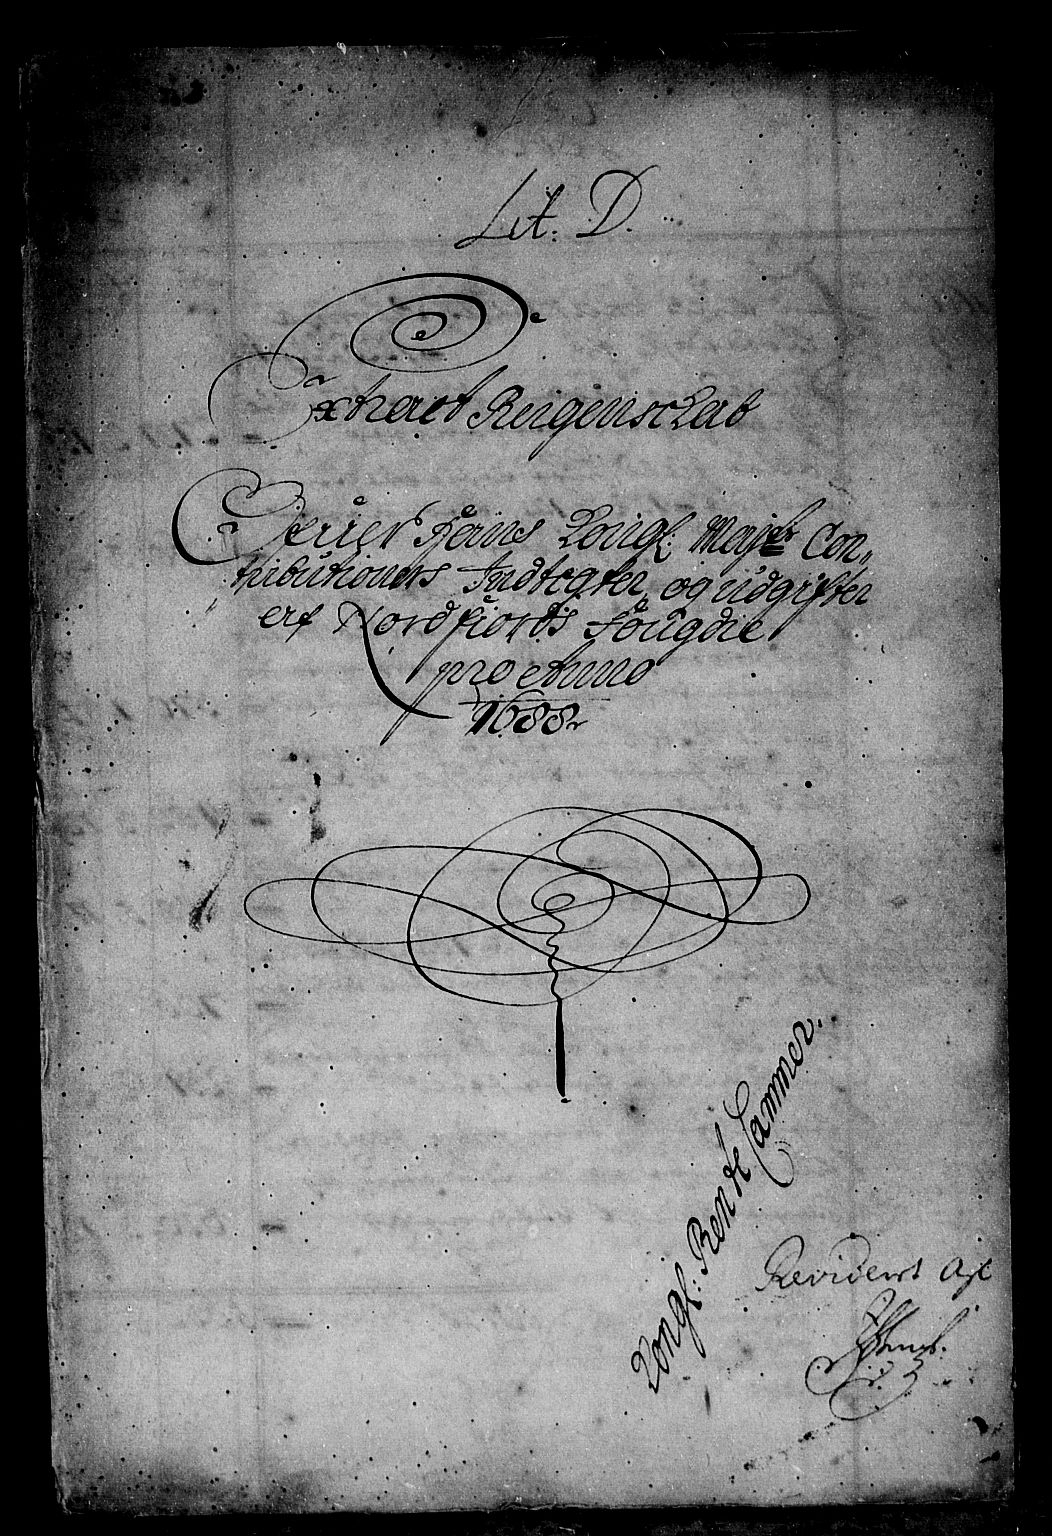 Lit. D.
Extract Reigenschab
Ofuer Hans Kongl: Maj:ts Con„
tributioners Indtegter, og Udgifter
af Nordfiords Fougdie
pro Anno
1688
Kongl: Rente Cammer.
Revideret af